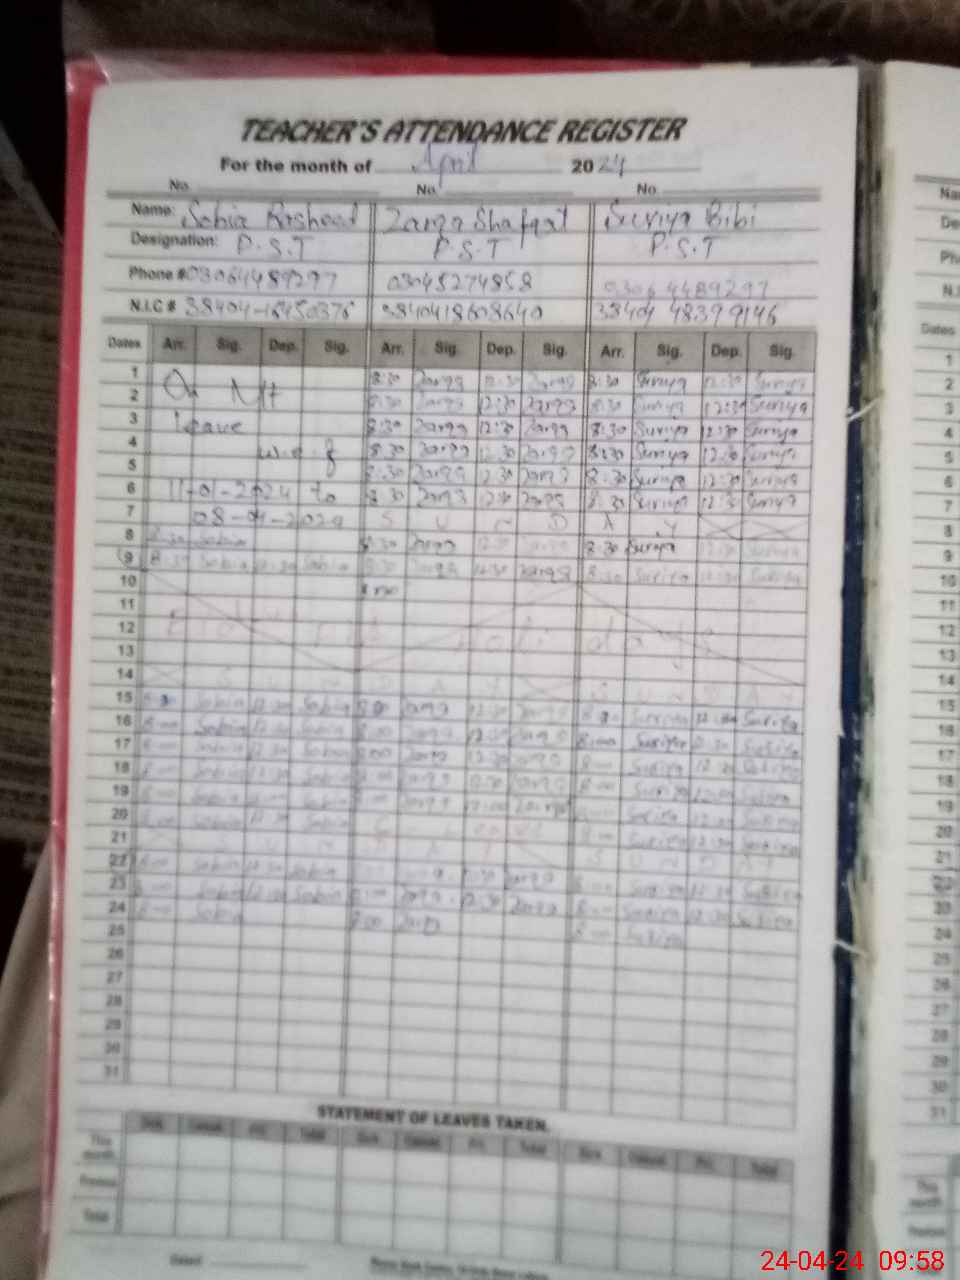 TEACHER'S ATTENDANCE REGISTER
For the month of April 2024
No. No. No.
Name: Sobia Rasheed Zarqa Shafqat Suriya Bibi
Designation: P.S.T P.S.T P.S.T
Phone # 03064489297 03045274858 03064489297
N.I.C # 38404-16450376 3840418608640 38404 48399146
Dates Arr. Sig. Dep. Sig. Arr. Sig. Dep. Sig. Arr. Sig. Dep. Sig.
1 On Mt 8:30 Zarqa 12:30 Zarqa 8:30 Suriya 12:30 Suriya
2 8:30 Zarqa 12:30 Zarqa 8:30 Suriya 12:30 Suriya
3 leave 8:30 Zarqa 12:30 Zarqa 8:30 Suriya 12:30 Suriya
4 w.e.f 8:30 Zarqa 12:30 Zarqa 8:30 Suriya 12:30 Suriya
5 8:30 Zarqa 12:30 Zarqa 8:30 Suriya 12:30 Suriya
6 11-01-2024 to 8:30 Zarqa 12:30 Zarqa 8:30 Suriya 12:30 Suriya
7 08-04-2024 S U N D A Y
8 8:30 Sobia 8:30 Zarqa 12:30 8:30 Suriya 12:30 Suriya
9 8:30 Sobia 12:30 Sobia 8:30 Zarqa 12:30 Zarqa 8:30 Suriya 12:30 Suriya
10 8:00
11
12 Holidays
13
14 S U N D A Y S U N D A Y
15 Sobia 12:30 Sobia Zarqa 12:30 Zarqa Suriya Suriya
16 8:00 Sobia 12:30 Sobia 8:00 Zarqa 12:30 Zarqa 8:00 Suriya 12:30 Suriya
17 8:00 Sobia 12:30 Sobia 8:00 Zarqa 12:30 Zarqa 8:00 Suriya 12:30 Suriya
18 8:00 Sobia 12:30 Sobia 8:00 Zarqa 12:30 Zarqa 8:00 Suriya Suriya
19 8:00 Sobia Sobia 8:00 Zarqa 12:00 Zarqa 8:00 Suriya Suriya
20 8:00 Sobia Sobia Leave 8:00 Suriya 12:30 Suriya
21 S U N D A Y S U N D A Y
22 8:00 Sobia 12:30 Sobia 12:30 Zarqa 8:00 Suriya 12:30 Suriya
23 8:00 Sobia 12:30 Sobia 8:00 Zarqa 12:30 Zarqa 8:00 Suriya 12:30 Suriya
24 8:00 Sobia 8:00 Zarqa 8:00 Suriya
25
26
27
28
29
30
31
STATEMENT OF LEAVES TAKEN.
Sick Casual Pri. Total Sick Casual Pri. Total Sick Casual Pri. Total
This month
Previous
Total
Dated
Na
De
Ph
N.I
Dates
1
2
3
4
5
6
7
8
9
10
11
12
13
14
15
16
17
18
19
20
21
22
23
24
25
26
27
28
29
30
31
This month
Previous
24-04-24 09:58